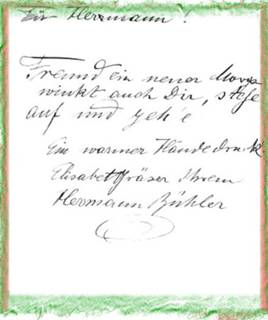 Für Herrmann!
Freund ein neuer Morgen
winkt auch Dir, stehe
auf und gehe
Ein warmer Händedruck
Elisabeth Gräser Ihrem
Hermann Bühler